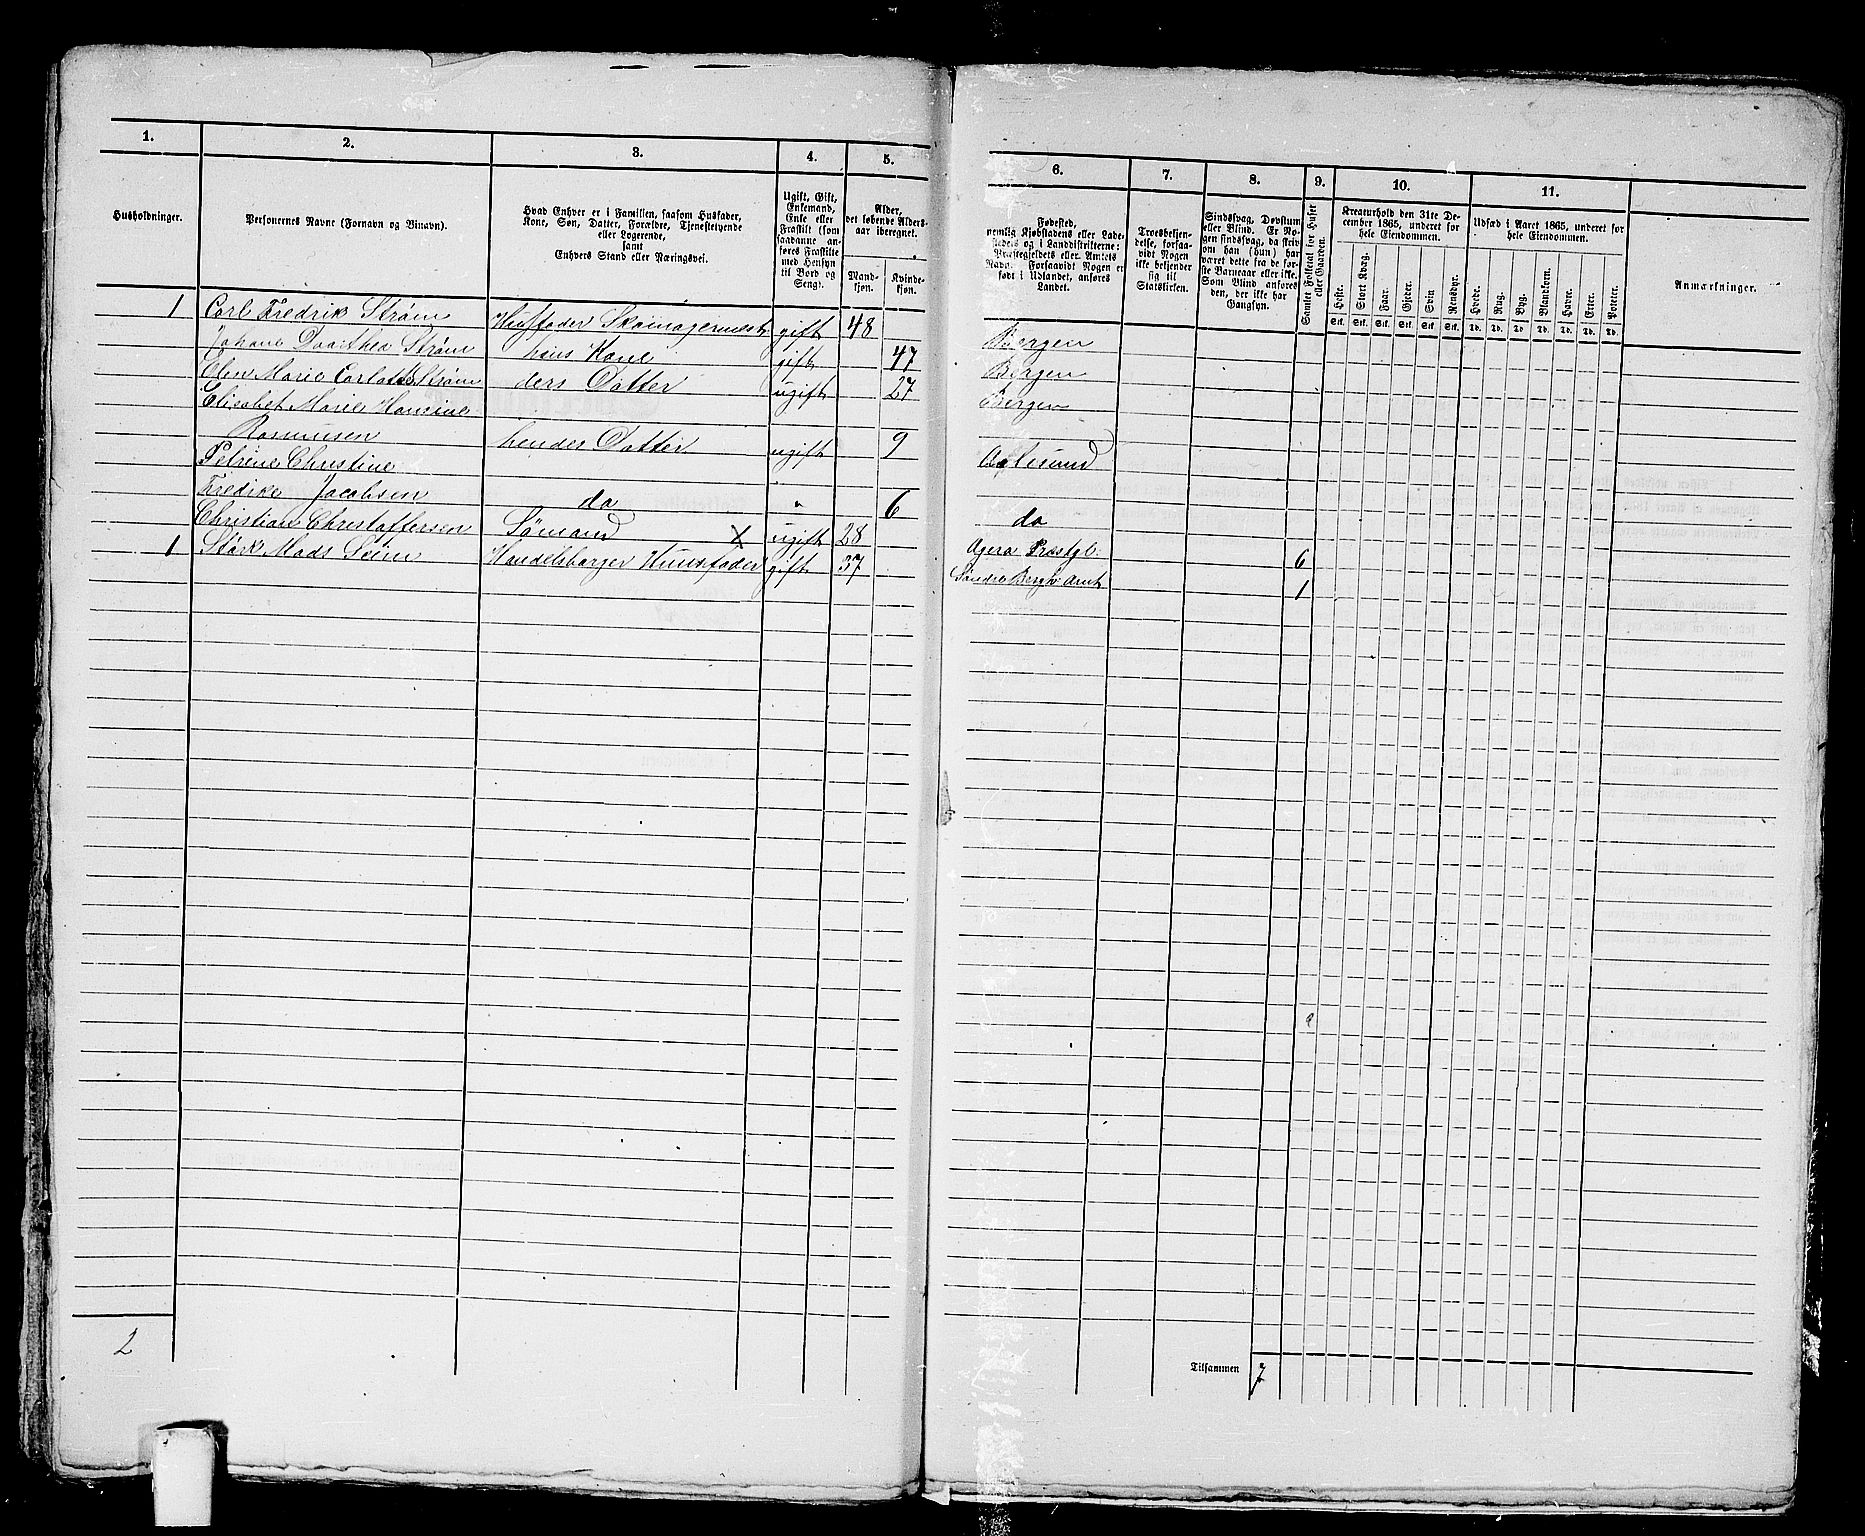 1. 2. 3. 4. 5. 6. 7. 8. 9. 10. 11.
Husholdninger.
Personernes Navne (Fornavn og Binavn).
Hvad Enhver er i Familien, saasom Husfader,
Kone, Søn, Datter, Forældre, Tjenestetyende
eller Logerende,
samt
Enhvers Stand eller Næringsvei.
Ugift, Gift,
Enkemand,
Enke eller
Fraskilt (som
saadanne an-
føres Fraskilte
med Hensyn
til Bord og
Seng).
Alder,
det løbende Alders-
aar iberegnet.
Mand-
kjøn.
Kvinde-
kjøn.
Fødested,
nemlig Kjøbstadens eller Lade-
stedets og i Landdistrikterne:
Præstegjeldets eller Amtets
Navn. Forsaavidt Nogen er
født i Udlandet, anføres
Landet.
Troesbekjen-
delse, forsaa-
vidt Nogen
ikke bekjender
sig til
Statskirken.
Sindssvag, Døvstum
eller Blind. Er No-
gen sindssvag, da skriv
om han (hun) har
været dette fra de før-
ste Barneaar eller ikke.
Som Blind anføres
den, der ikke har
Gangsyn.
Samlet Folketal for Huset
eller Gaarden.
Kreaturhold den 31te De-
cember 1865, underet for
hele Eiendommen.
Heste. Stort Kvæg. Faar. Gjeder. Svin Rensdyr.
Stk. Stk. Stk. Stk. Stk. Stk.
Udsæd i Aaret 1865, underet for
hele Eiendommen.
Hvede. Rug. Byg. Blandkorn. Havre. Erter. Poteter.
Td. Td. Td. Td. Td. Td. Td.
Anmærkninger.
1 Carl Fredrik Strøm Husfader Skomagermest gift 48 Bergen
Johane Dorthea Strøm hans Kone gift 47 Bergen
Elen Marie Strøm ders Datter ugift 27 Bergen
Elisabet Marie
Rasmusen hendes Datter ugift 9 Aalesund
Petrine Christine
Fredike Jacobsen do " 6 do
Christian Christoffersen Sømand x ugift 28 Præstgl: 6
1 Mads Seim Handelsborger Huusfader gift 37 Søndre Bergh: Amt 1
2
Tilsammen 7